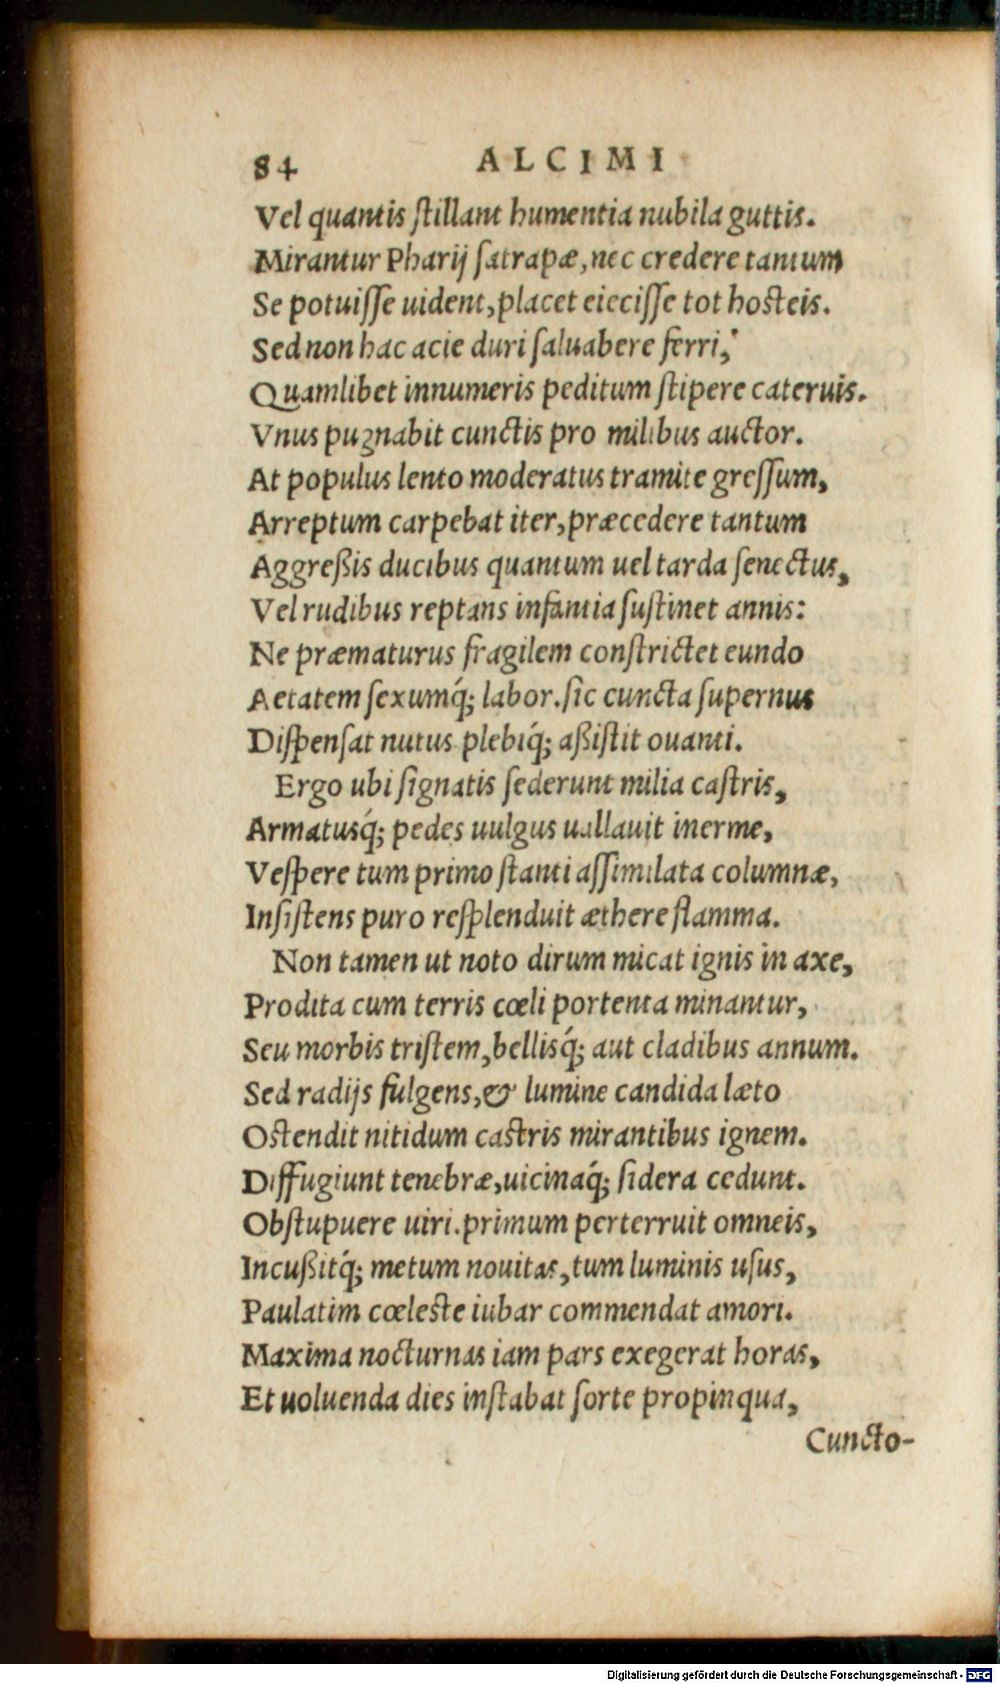 84 ALCIMI
Vel quantis ſtillant humentia nubila guttis.
Mirantur Pharij ſatrapæ, nec credere tantum
Se potuiſſe uident, placet eieciſſe tot hosteis.
Sed non hac acie duri ſaluabere ferri,
Quamlibet innumeris peditum ſtipere cateruis.
Vnus pugnabit cunctis pro milibus auctor.
At populus lento moderatus tramite greſſum,
Arreptum carpebat iter, præcedere tantum
Aggreßis ducibus quantum uel tarda ſenectus,
Vel rudibus reptans infantia ſuſtinet annis:
Ne præmaturus fragilem conſtrictet eundo
Aetatem ſexumq́; labor. ſic cuncta ſupernus
Diſpenſat nutus plebiq́; aßiſtit ouanti.
Ergo ubi ſignatis ſederunt milia caſtris,
Armatusq́; pedes uulgus uallauit inerme,
Veſpere tum primo ſtanti aſſimilata columnæ,
Inſiſtens puro reſplenduit æthere flamma.
Non tamen ut noto dirum micat ignis in axe,
Prodita cum terris cœli portenta minantur,
Seu morbis triſtem, bellisq́; aut cladibus annum.
Sed radijs fulgens, & lumine candida læto
Ostendit nitidum castris mirantibus ignem.
Diffugiunt tenebræ, uicinaq́; ſidera cedunt.
Obſtupuere uiri. primum perterruit omneis,
Incußitq́; metum nouitas, tum luminis uſus,
Paulatim cœleste iubar commendat amori.
Maxima nocturnas iam pars exegerat horas,
Et uoluenda dies inſtabat ſorte propinqua,
Cuncto-
Digitalisierung gefördert durch die Deutsche Forschungsgemeinschaft - DFG